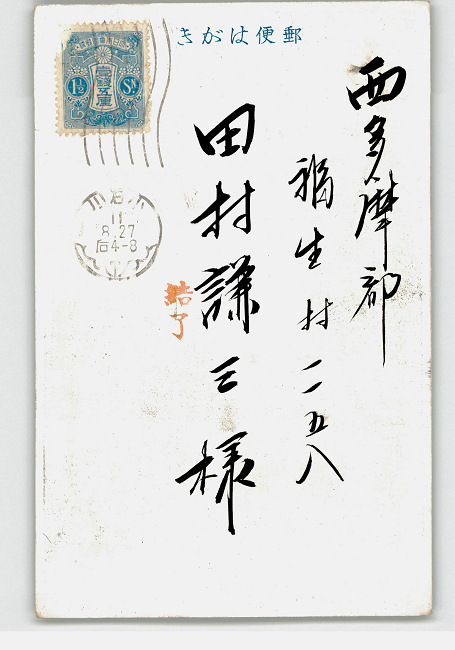 郵便はがき
西多摩郡
福生村二五八
田村謙三様
大日本帝國郵便
壹錢五厘
1½ Sn
小石川
11
8.27
后4-8